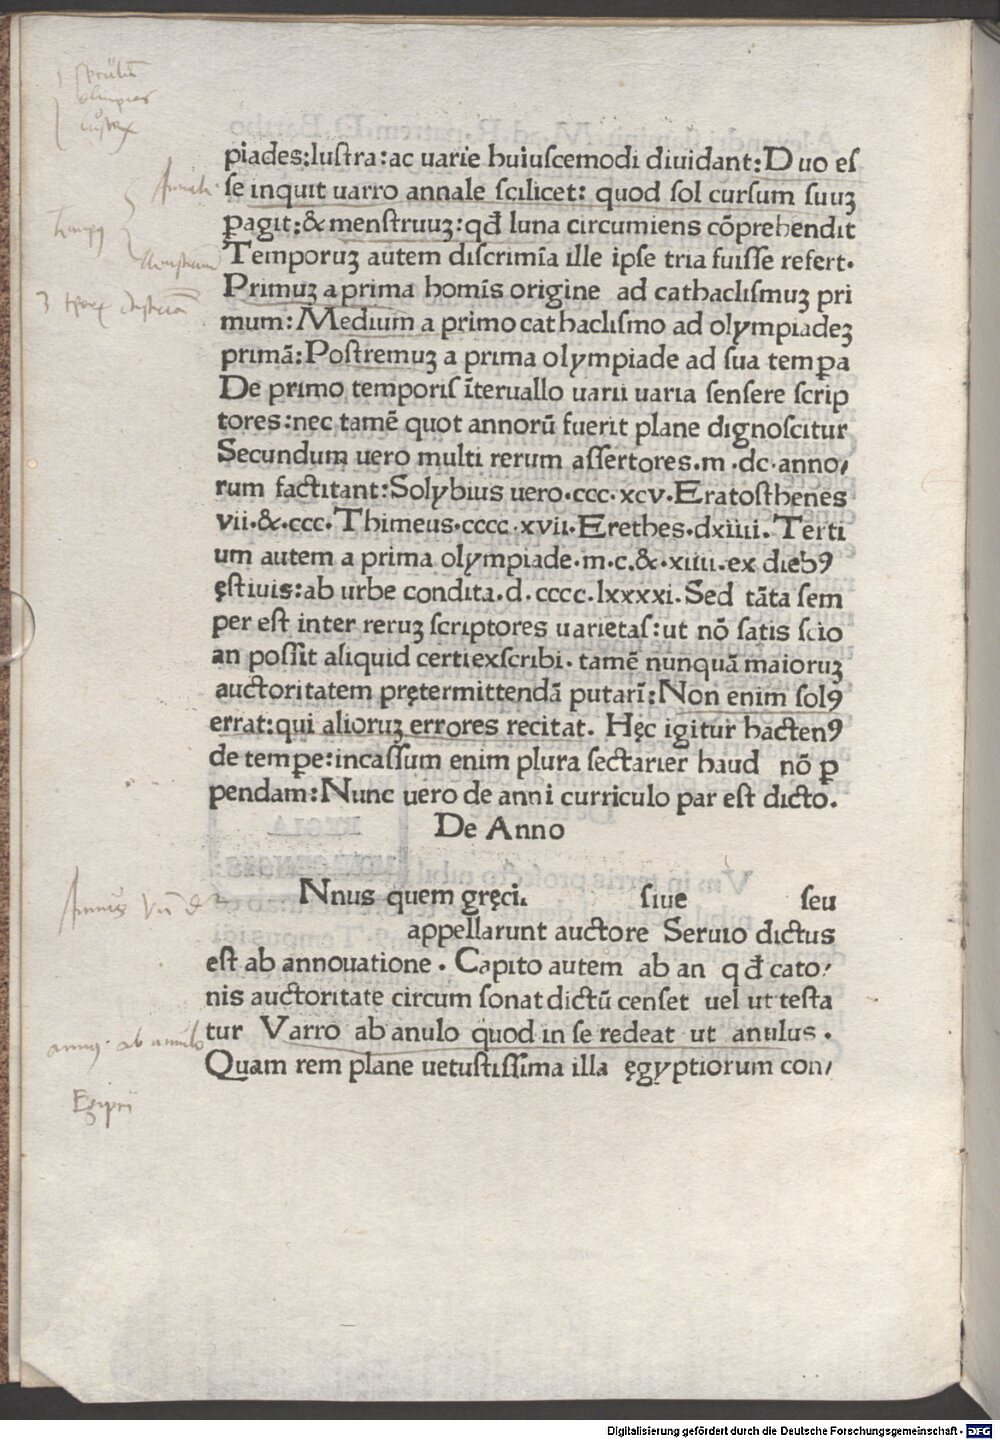 piades:lustra:ac uarie huiuscemodi diuidant:Duo es
se inquit uarro annale scilicet: quod sol cursum suuꝫ
ꝑagit:& menstruuꝫ:qđ luna circumiens cōprehendit
Temporuꝫ autem discrimīa ille ipse tria fuisse refert.
Primuꝫ a prima homis origine ad cathaclismuꝫ pri
mum:Medium a primo cathaclismo ad olympiadeꝫ
primā:Postremuꝫ a prima olympiade ad sua temꝑa
De primo temporis īteruallo uarii uaria sensere scrip
tores:nec tamē quot annorū fuerit plane dignoscitur
Secundum uero multi rerum assertores.m.dc.anno/
rum factitant:Solybius uero.ccc.xcv.Eratosthenes
vii.&.ccc.Thimeus.cccc.xvii.Erethes.dxiiii.Terti
um autem a prima olympiade.m.c.&.xiiii.ex diebꝰ
ęstiuis:ab urbe condita.d.cccc.lxxxxi.Sed tāta sem
per est inter reruꝫ scriptores uarietas:ut nō satis scio
an possit aliquid certi exscribi. tamē nunquā maioruꝫ
auctoritatem prętermittendā putarī:Non enim solꝰ
errat:qui alioruꝫ errores recitat. Hęc igitur hactenꝰ
de temꝑe:incassum enim plura sectarier haud nō ꝑ
pendam:Nunc uero de anni curriculo par est dicto.
De Anno
Nnus quem gręci. siue seu
appellarunt auctore Seruio dictus
est ab annouatione. Capito autem ab an qđ cato/
nis auctoritate circum sonat dictū censet uel ut testa
tur Varro ab anulo quod in se redeat ut anulus.
Quam rem plane uetustissima illa ęgyptiorum con/
annus ab annulo
Egiptii
Digitalisierung gefördert durch die Deutsche Forschungsgemeinschaft - DFG